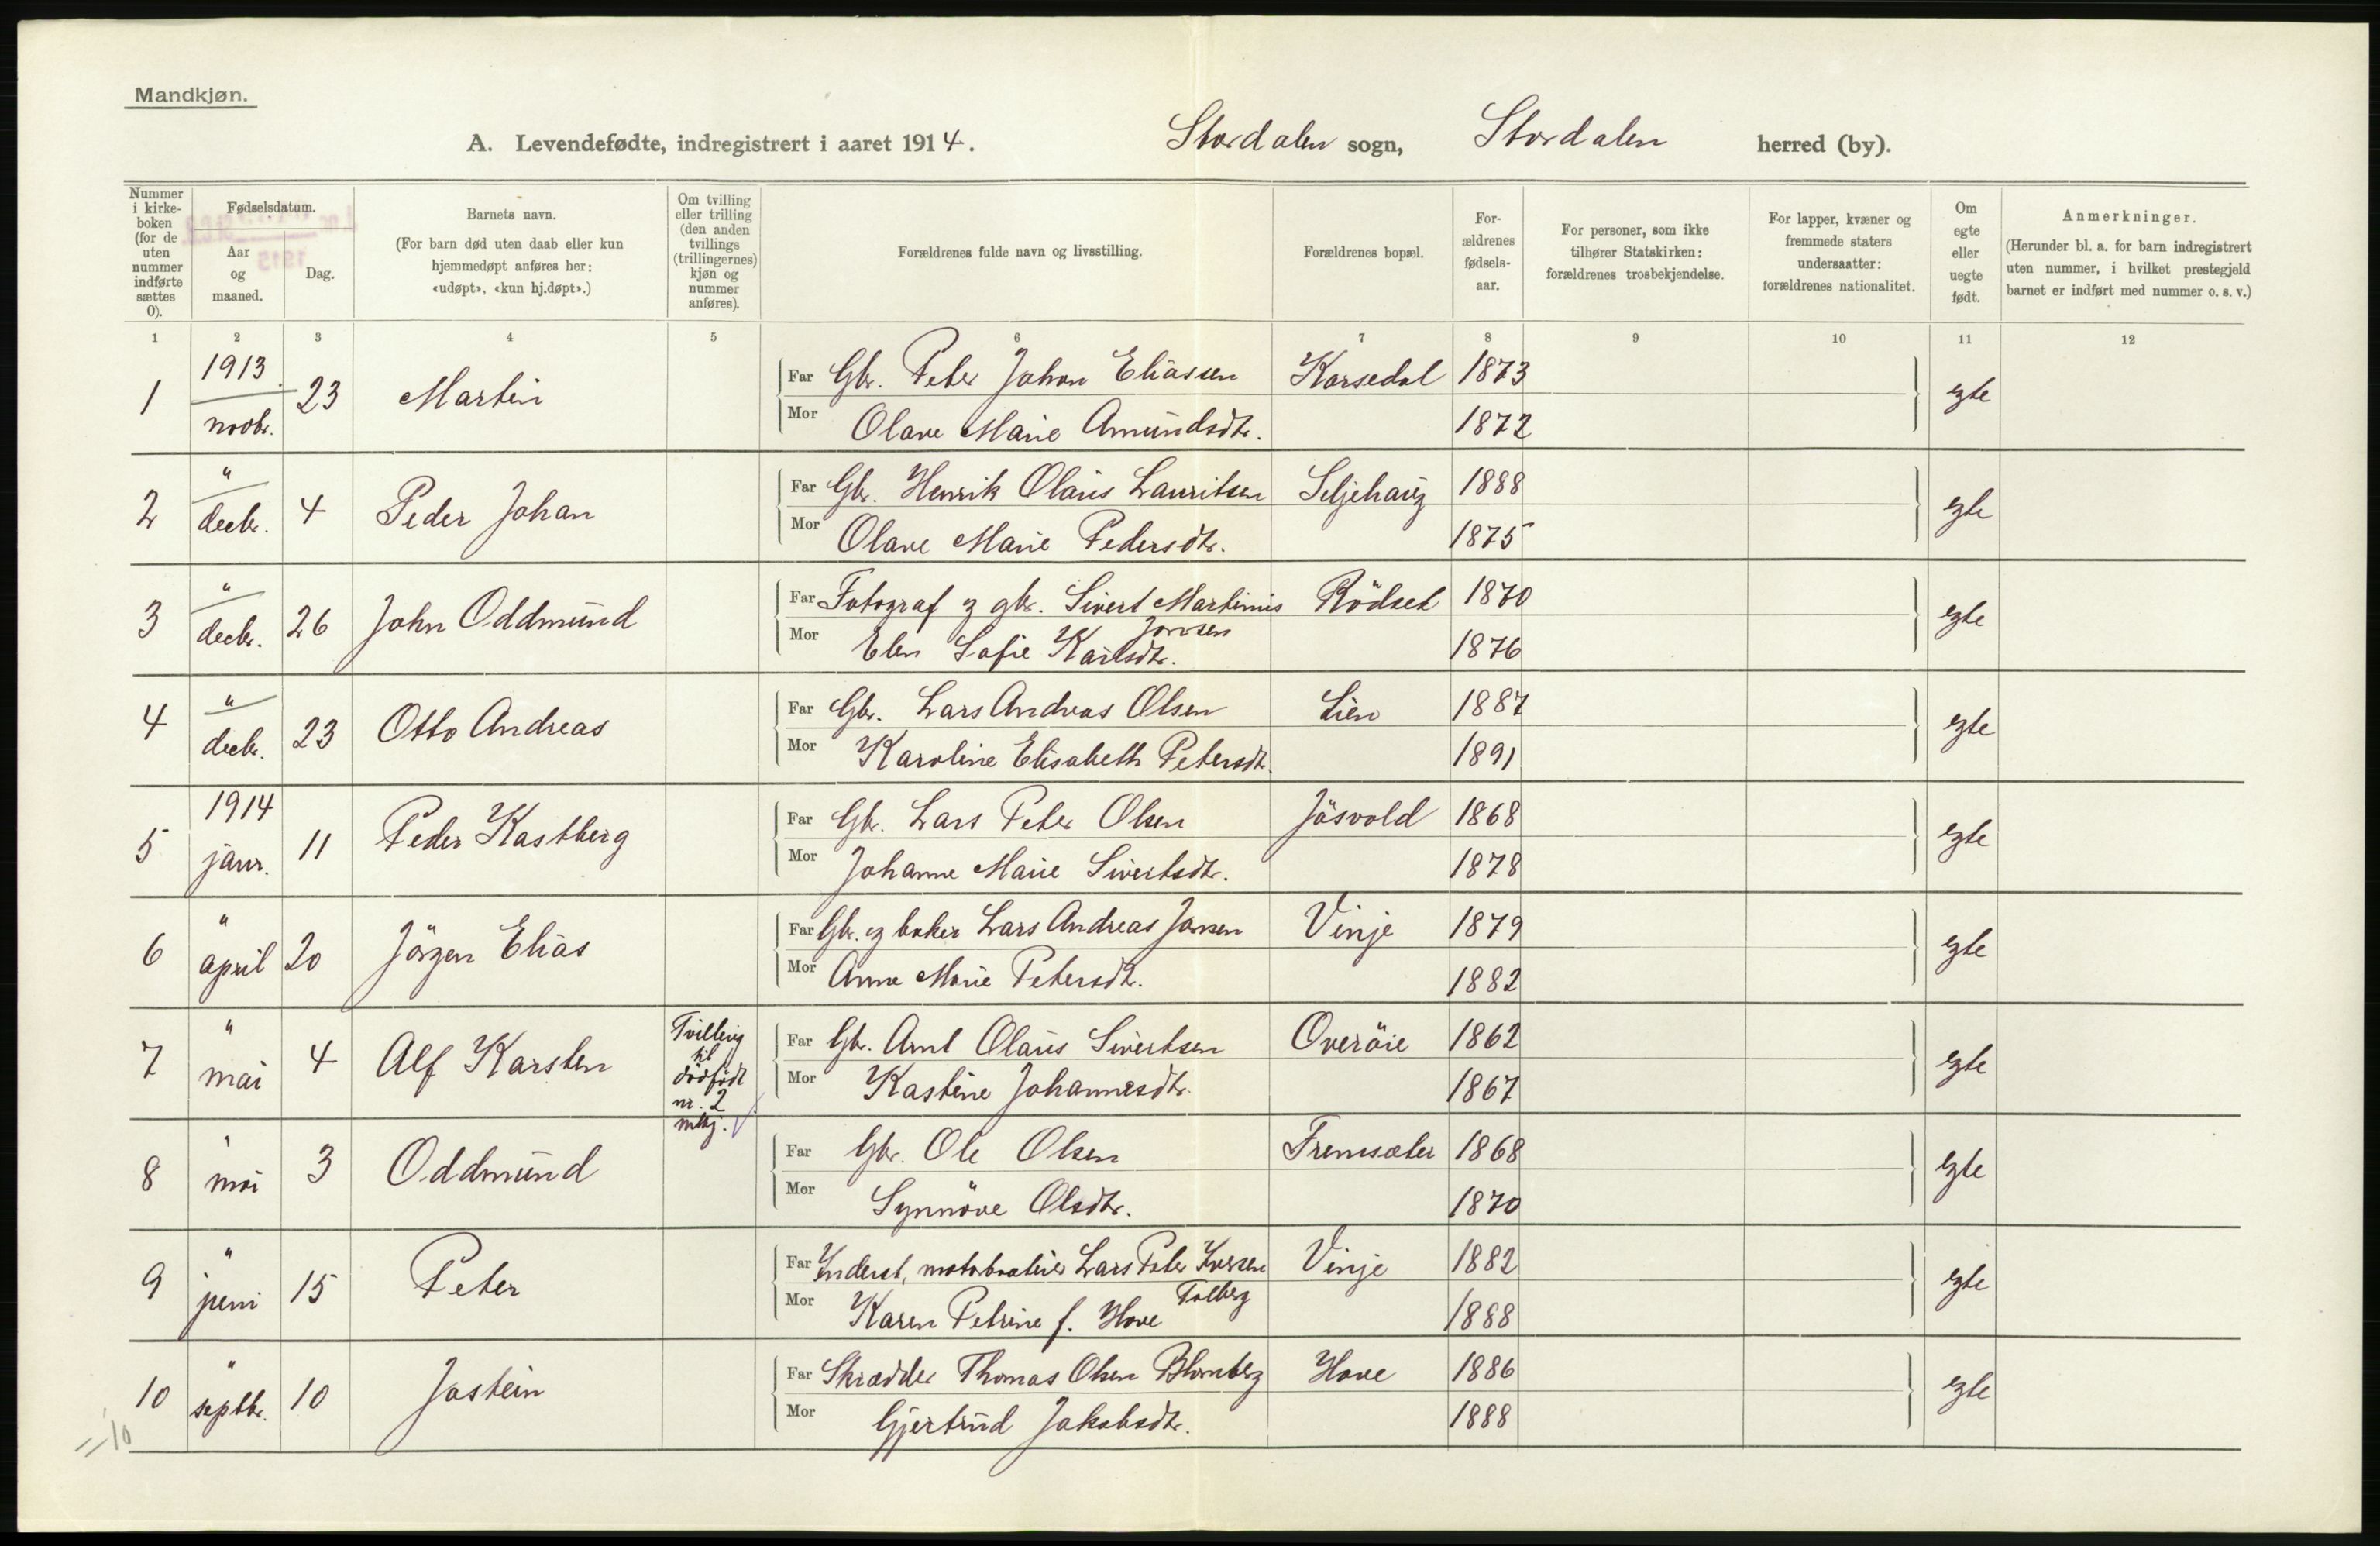 Mandkjøn.
A. Levendefødte, indregistrert i aaret 1914. Stordalen sogn, Stordalen herred (by).
Nummer i kirke-boken (for de uten nummer indførte sættes 0).
Fødselsdatum.
Aar og maaned.
Dag.
Barnets navn.
(For barn død uten daab eller kun hjemmedøpt anføres her: «udøpt», «kun hj.døpt».)
Om tvilling eller trilling (den anden tvillings (trillingernes) kjøn og nummer anføres).
Forældrenes fulde navn og livsstilling.
Forældrenes bopæl.
For-ældrenes fødsels-aar.
For personer, som ikke tilhører Statskirken: forældrenes trosbekjendelse.
For lapper, kvæner og fremmede staters undersaatter: forældrenes nationalitet.
Om egte eller uegte født.
Anmerkninger.
(Herunder bl. a. for barn indregistrert uten nummer, i hvilket prestegjeld barnet er indført med nummer o. s. v.)
1 2 3 4 5 6 7 8 9 10 11 12
1 1913 novbr. 23 Martin Far Gbr. Peter Johan Eliassen Korsedal 1873 egte
Mor Olave Marie Amundsdtr. 1872
2 " decbr. 4 Peder Johan Far Gbr. Henrik Olaus Lauritsen Seljehaug 1888 egte
Mor Olave Marie Pedersdtr. 1875
3 " decbr. 26 John Oddmund Far Fotograf og gbr. Sivert Martinus Jonsen Rödset 1870 egte
Mor Elen Sofie Karlsdtr. 1876
4 " decbr. 23 Otto Andreas Far Gbr. Lars Andreas Olsen Lien 1887 egte
Mor Karoline Elisabeth Petersdtr. 1891
5 1914 janr. 11 Peder Kastberg Far Gbr. Lars Peter Olsen Jösvold 1868 egte
Mor Johanne Marie Sivertsdtr. 1878
6 " april 20 Jörgen Elias Far Gbr. og baker Lars Andreas Jonsen Vinje 1879 egte
Mor Anne Marie Petersdtr. 1882
7 " mai 4 Alf Karsten Tvilling til dödfödt nr. 2 mkj. Far Gbr. Arnt Olaus Sivertsen Overöie 1862 egte
Mor Kastine Johannesdtr. 1867
8 " mai 3 Oddmund Far Gbr. Ole Olsen Fremsæter 1868 egte
Mor Synnöve Olsdtr. 1870
9 " juni 15 Peter Far Inderst, Lars Peter Iversen Vinje 1882 egte
Mor Karen Petrine f. Hove 1888
10 " septbr. 10 Jostein Far Skrædder Thomas Olsen Blomberg Hove 1886 egte
Mor Gjertrud Jakobsdtr. 1888
= 10